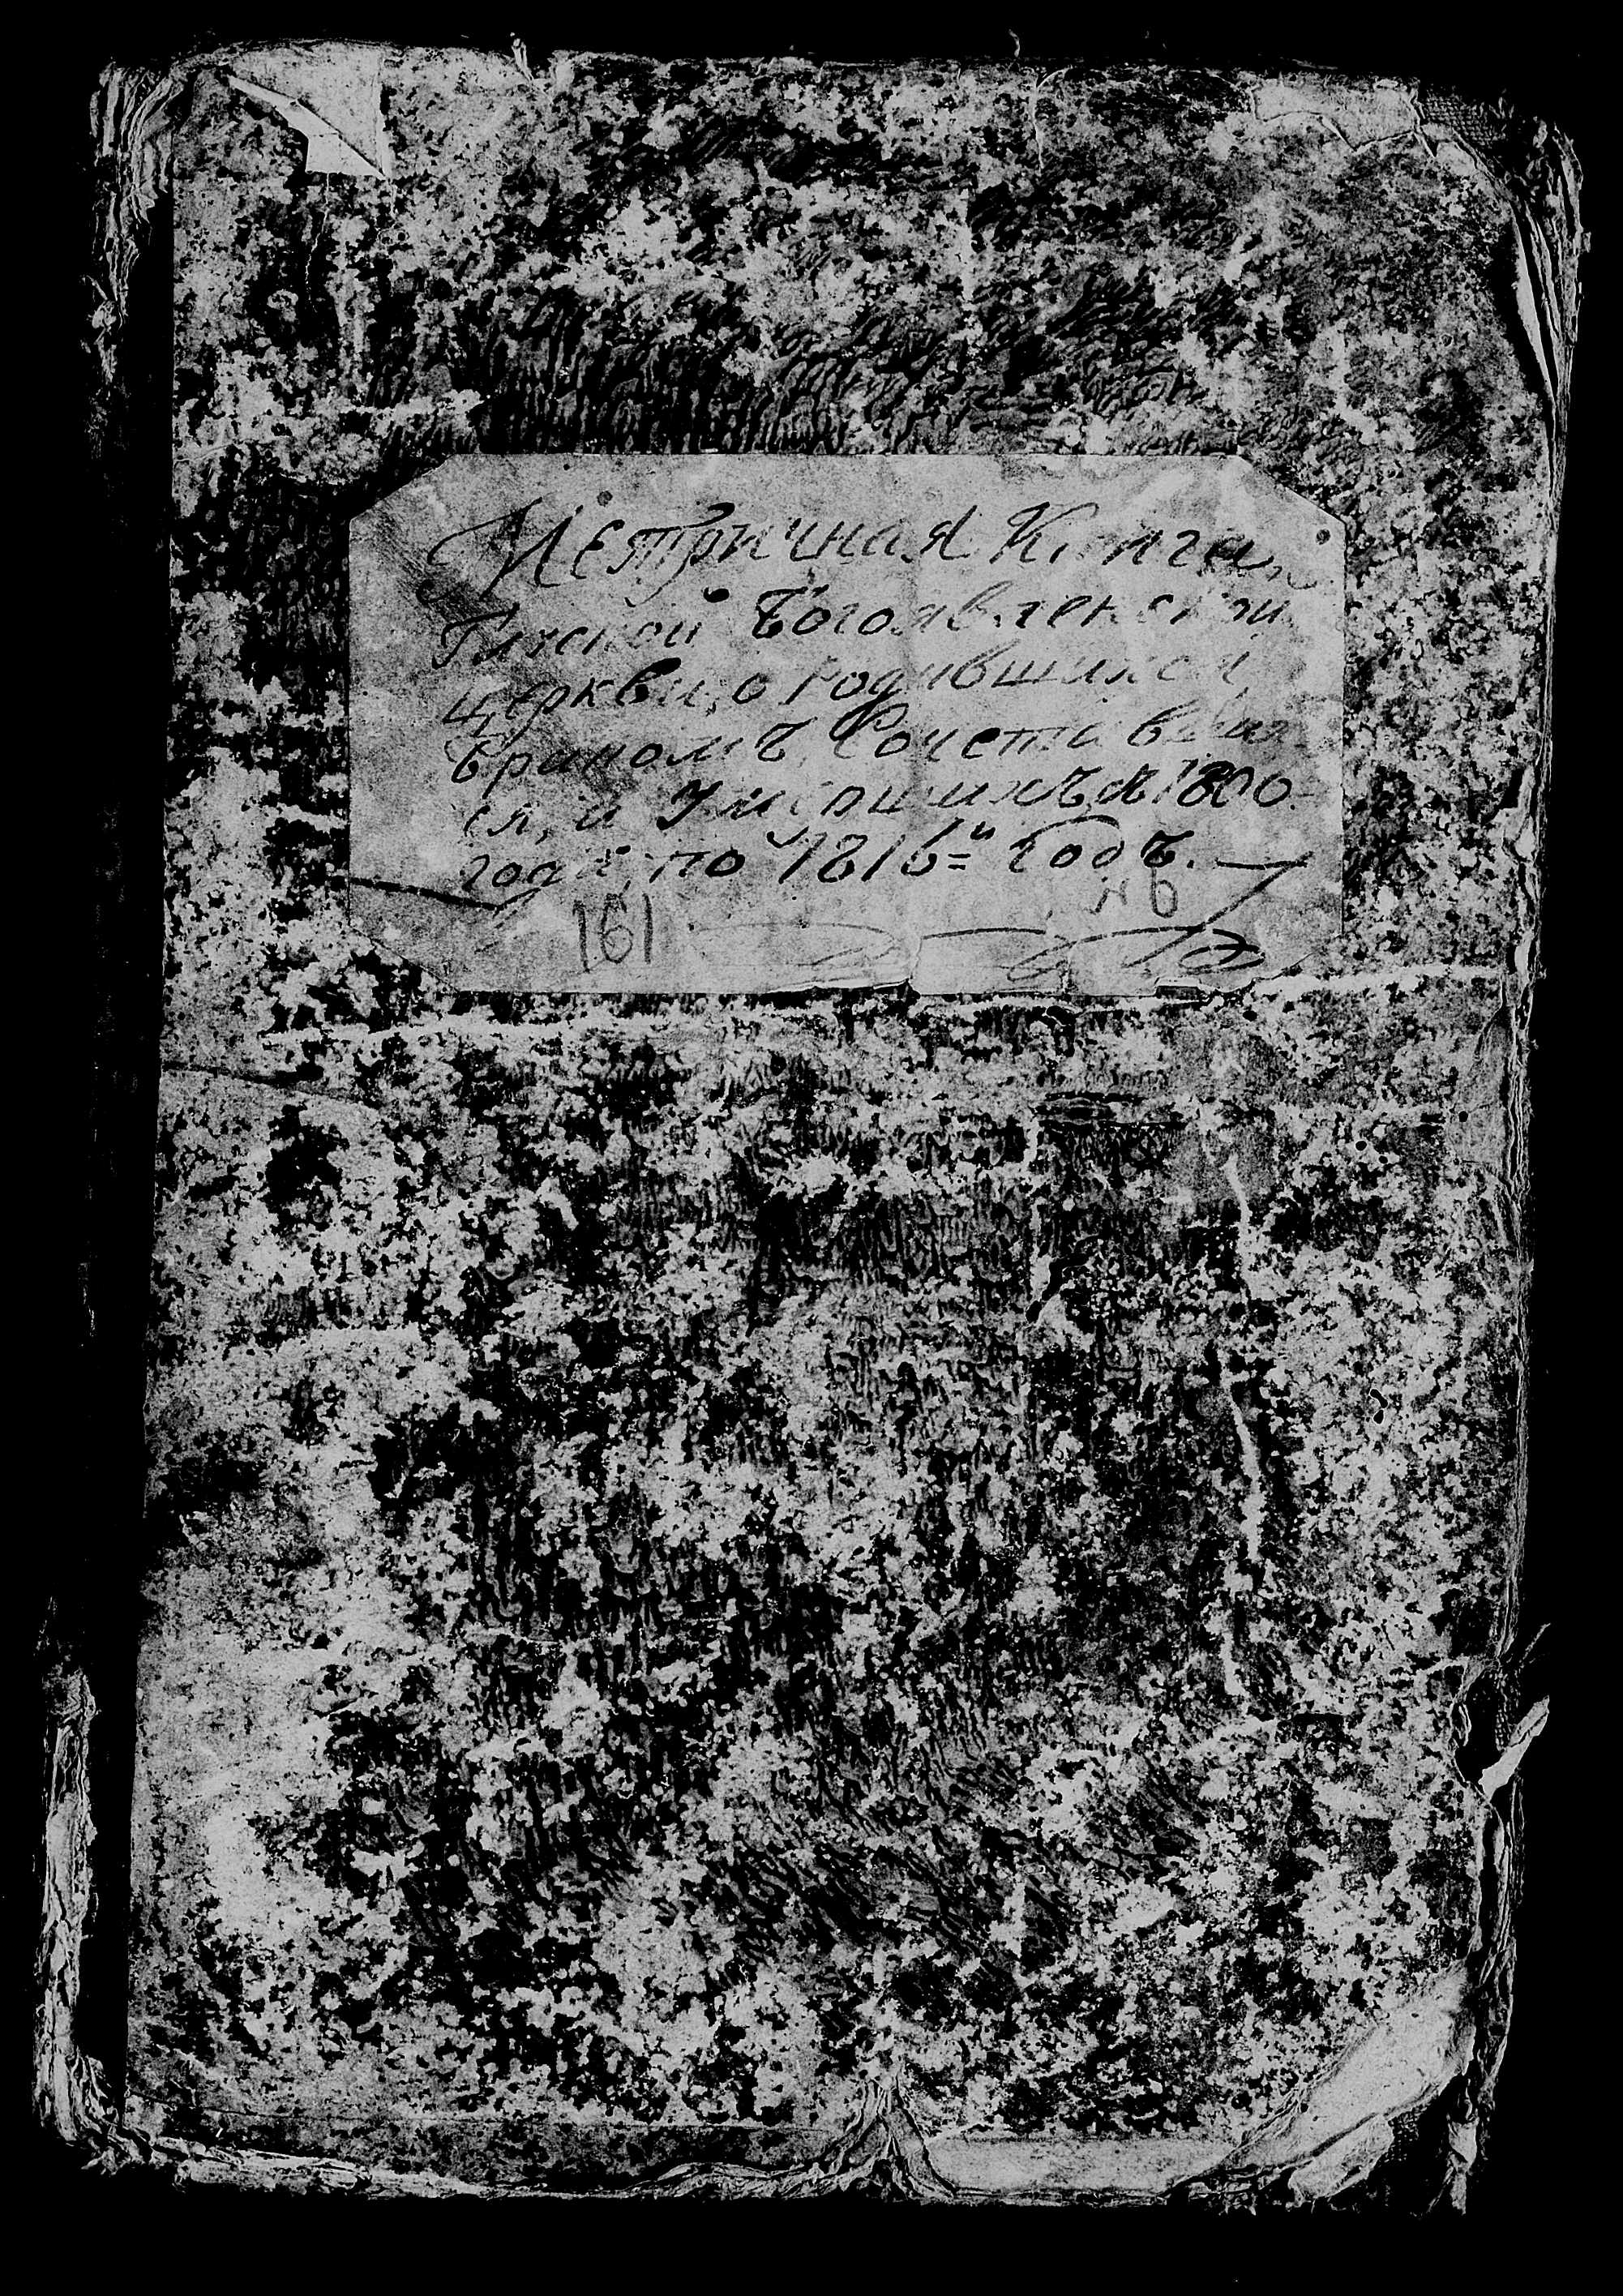 Метричная Книга,
Богоявленской
Церкви, о родившихся,
бракомъ Сочетавших
ся, и Умершихъ съ 1800
года, по 1816=й Годъ.
№6
161